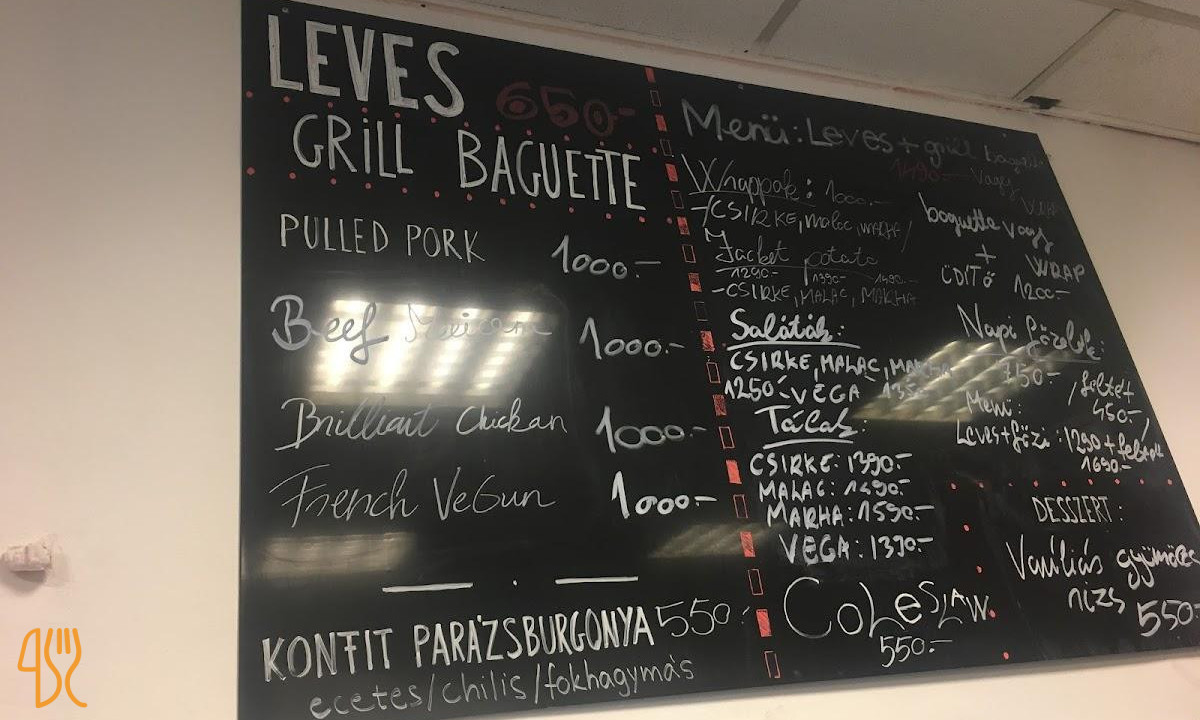 LEVES 650.-
GRILL BAGUETTE
PULLED PORK 1000.-
Beef Mexican 1000.-
Brilliant Chickan 1000.-
French VeGun 1000.-
KONFIT PARÁZSBURGONYA 550.-
ecetes/chilis/fokhagymás
Menü: Leves + grill baguette
1490.- vagy
wrap
Wrappok: 1000.-
-/CSIRKE, malac, MARHA/
Jacket potato
1290.- 1390.- 1490.-
-CSIRKE, MALAC, MARHA
Saláták:
CSIRKE, MALAC, MARHA
1250.- VEGA 1350
Tálak:
CSIRKE: 1390.-
MALAC: 1490.-
MARHA: 1590.-
VEGA: 1390.-
COLESLAW
550.-
baguette vagy
+ WRAP
ÜDÍTŐ 1200.-
Napi főzelék:
750.- /feltét
450.-
Menü:
Leves+főzi: 1290 + feltét/
1690.-
DESSZERT:
Vaníliás gyümölcs
rizs 550